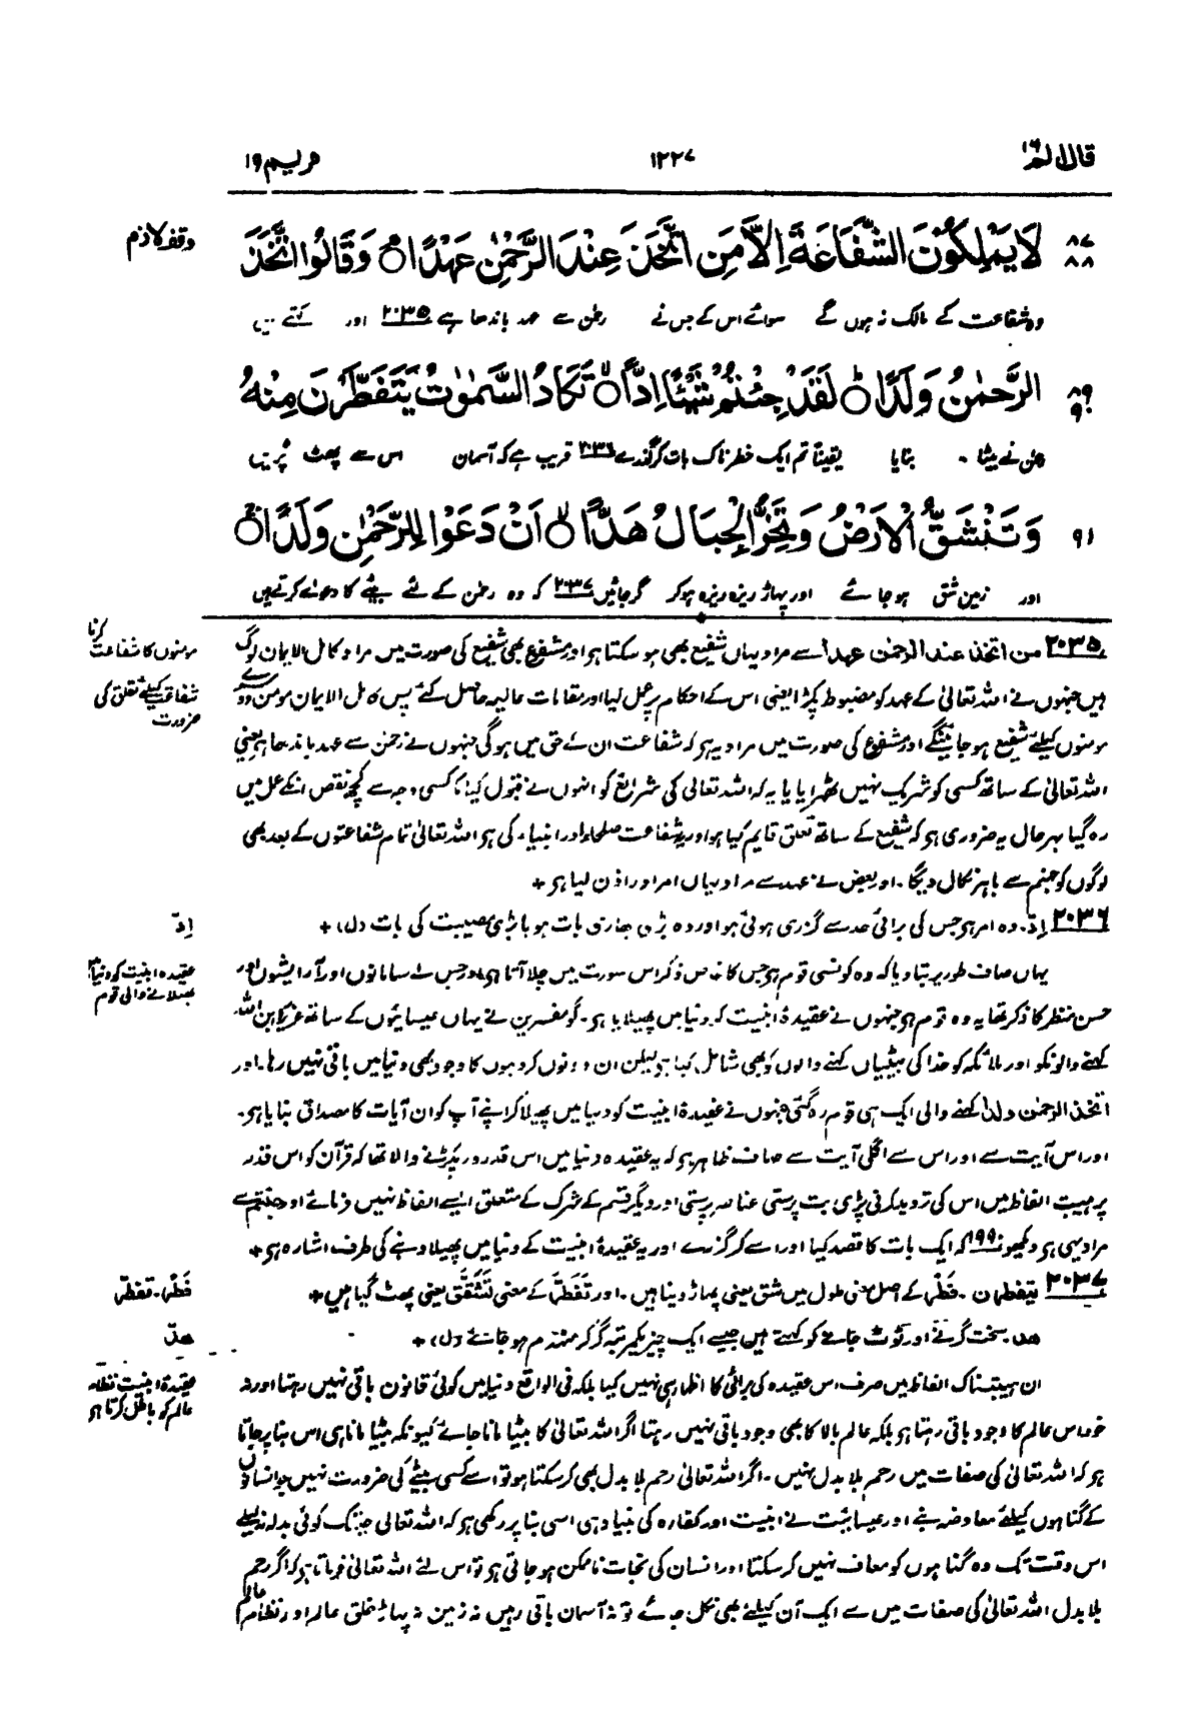 قال الم ١٦
١٢٢٧
مریم ١٩
٨٧
٨٨
لَا يَمْلِكُوْنَ الشَّفَاعَةَ اِلَّا مَنِ اتَّخَذَ عِنْدَ الرَّحْمٰنِ عَهْدًا ۘ وَقَالُوا اتَّخَذَ
وقف لازم
وہ شفاعت کے مالک نہ ہوں گے سوائے اس کے جس نے رحمٰن سے عہد باندھا ہے ٢٠٣٥ اور کہتے ہیں
٨٩
٩٠
الرَّحْمٰنُ وَلَدًا ؕ لَقَدْ جِئْتُمْ شَيْئًا اِدًّا ۙ تَكَادُ السَّمٰوٰتُ يَتَفَطَّرْنَ مِنْهُ
رحمٰن نے بیٹا بنایا یقیناً تم ایک خطرناک بات کر گذرے ٢٠٣٦ قریب ہے کہ آسمان اس سے پھٹ پڑیں
٩١
وَتَنْشَقُّ الْاَرْضُ وَتَخِرُّ الْجِبَالُ هَدًّا ۙ اَنْ دَعَوْا لِلرَّحْمٰنِ وَلَدًا ۚ
اور زمین شق ہو جائے اور پہاڑ ریزہ ریزہ ہو کر گر جائیں ٢٠٣٧ کہ وہ رحمٰن کے لئے بیٹے کا دعوے کرتے ہیں
٢٠٣٥ من اتخذ عند الرحمٰن عھدا سے مراد یہاں شفیع بھی ہو سکتا ہو اور مشفوع بھی شفیع کی صورت میں مراد کامل الایمان لوگ
مومنوں کا شفاعت کرنا
ہیں جنہوں نے اللہ تعالیٰ کے عہد کو مضبوط پکڑا یعنی اس کے احکام پر عمل کیا اور مقامات عالیہ حاصل کئے پس کامل الایمان مومن دوسرے
شفاعت کیلئے تعلق کی ضرورت
مومنوں کیلئے شفیع ہو جائینگے اور مشفوع کی صورت میں مراد یہ ہو کہ شفاعت ان کے حق میں ہوگی جنہوں نے رحمٰن سے عہد باندھا ہے یعنی
اللہ تعالیٰ کے ساتھ کسی کو شریک نہیں ٹھہرایا یا یہ کہ اللہ تعالیٰ کی شرائع کو انہوں نے قبول کیا گو کسی وجہ سے کچھ نقص انکے عمل میں
رہ گیا بہرحال یہ ضروری ہو کہ شفیع کے ساتھ تعلق قایم کیا ہو اور یہ شفاعت صلحاء اور انبیاء کی ہو اللہ تعالیٰ تمام شفاعتوں کے بعد بھی
لوگوں کو جہنم سے باہر نکال دیگا۔ اور بعض نے عہد سے مراد یہاں امر اور اذن لیا ہو +
٢٠٣٦ اِدّ۔ وہ امر ہے جس کی برائی حد سے گزری ہوئی ہو اور وہ بڑی بھاری بات ہو یا بڑی مصیبت کی بات (ل) +
اِدّ
یہاں صاف طور پر بتا دیا کہ وہ کونسی قوم ہو جس کا خاص ذکر اس سورت میں چلا آتا ہو اور جس کے سامانوں اور آرایشوں اور
عقیدہ ابنیت کو دنیا میں پھیلانے والی قوم
حسن منظر کا ذکر تھا یہ وہ قوم ہو جنہوں نے عقیدۂ ابنیت کو دنیا میں پھیلایا ہو۔ گو مفسرین نے یہاں عیسائیوں کے ساتھ عزیر ابن اللہ
کہنے والونکو اور ملائکہ کو خدا کی بیٹیاں کہنے والوں کو بھی شامل کیا ہو لیکن ان دونوں گروہوں کا وجود بھی دنیا میں باقی نہیں رہا۔ اور
اتخذ الرحمٰن ولدا کہنے والی ایک ہی قوم رہ گئی جنہوں نے عقیدۂ ابنیت کو دنیا میں پھیلا کر اپنے آپ کو ان آیات کا مصداق بنایا ہو۔
اور اس آیت سے اور اس سے اگلی آیت سے صاف ظاہر ہو کہ یہ عقیدہ دنیا میں اس قدر زور پکڑنے والا تھا کہ قرآن کو اس قدر
پر ہیبت الفاظ میں اس کی تردید کرنی پڑی بت پرستی عناصر پرستی اور دیگر قسم کے شرک کے متعلق ایسے الفاظ نہیں فرمائے اور جئتم سے
مراد یہی ہو دیکھو ١٩٩٠ کہ ایک بات کا قصد کیا اور اسے کر گزرے اور یہ عقیدۂ ابنیت کے دنیا میں پھیلا دینے کی طرف اشارہ ہو +
٢٠٣٧ یتفطرن۔ فَطْر کے اصل معنی طول میں شق یعنی پھاڑ دینا ہیں۔ اور تَفَطَّرَ کے معنی تَشَقَّقَ یعنی پھٹ گیا ہیں +
فَطْر۔ تفطّر
ھد۔ سخت گرنے اور ٹوٹ جانے کو کہتے ہیں جیسے ایک چیز یکمرتبہ گر کر منہدم ہو جائے (ل) +
ھدّ
ان ہیبتناک الفاظ میں صرف اس عقیدہ کی برائی کا اظہار ہی نہیں کیا بلکہ فی الواقع دنیا میں کوئی قانون باقی نہیں رہتا اور نہ
عقیدۂ ابنیت نظام عالم کو باطل کرتا ہو
خود اس عالم کا وجود باقی رہتا ہو بلکہ عالم بالا کا بھی وجود باقی نہیں رہتا اگر اللہ تعالیٰ کا بیٹا مانا جائے کیونکہ بیٹا ماننا ہی اس بنا پر جاتا
ہو کہ اللہ تعالیٰ کی صفات میں رحم بلا بدل نہیں۔ اگر اللہ تعالیٰ رحم بلا بدل بھی کر سکتا ہو تو اسے کسی بیٹے کی ضرورت نہیں جو انسانوں
کے گناہوں کیلئے معاوضہ بنے اور عیسائیت نے ابنیت اور کفارہ کی بنیاد ہی اسی بنا پر رکھی ہو کہ اللہ تعالیٰ جبتک کوئی بدلہ نہ لیلے
اس وقت تک وہ گناہوں کو معاف نہیں کر سکتا اور انسان کی نجات ناممکن ہو جاتی ہو تو اس لئے اللہ تعالیٰ فرماتا ہو کہ اگر رحم
بلا بدل اللہ تعالیٰ کی صفات میں سے ایک آن کیلئے بھی نکل جائے تو نہ آسمان باقی رہیں نہ زمین نہ پہاڑ خلق عالم اور نظام عالم